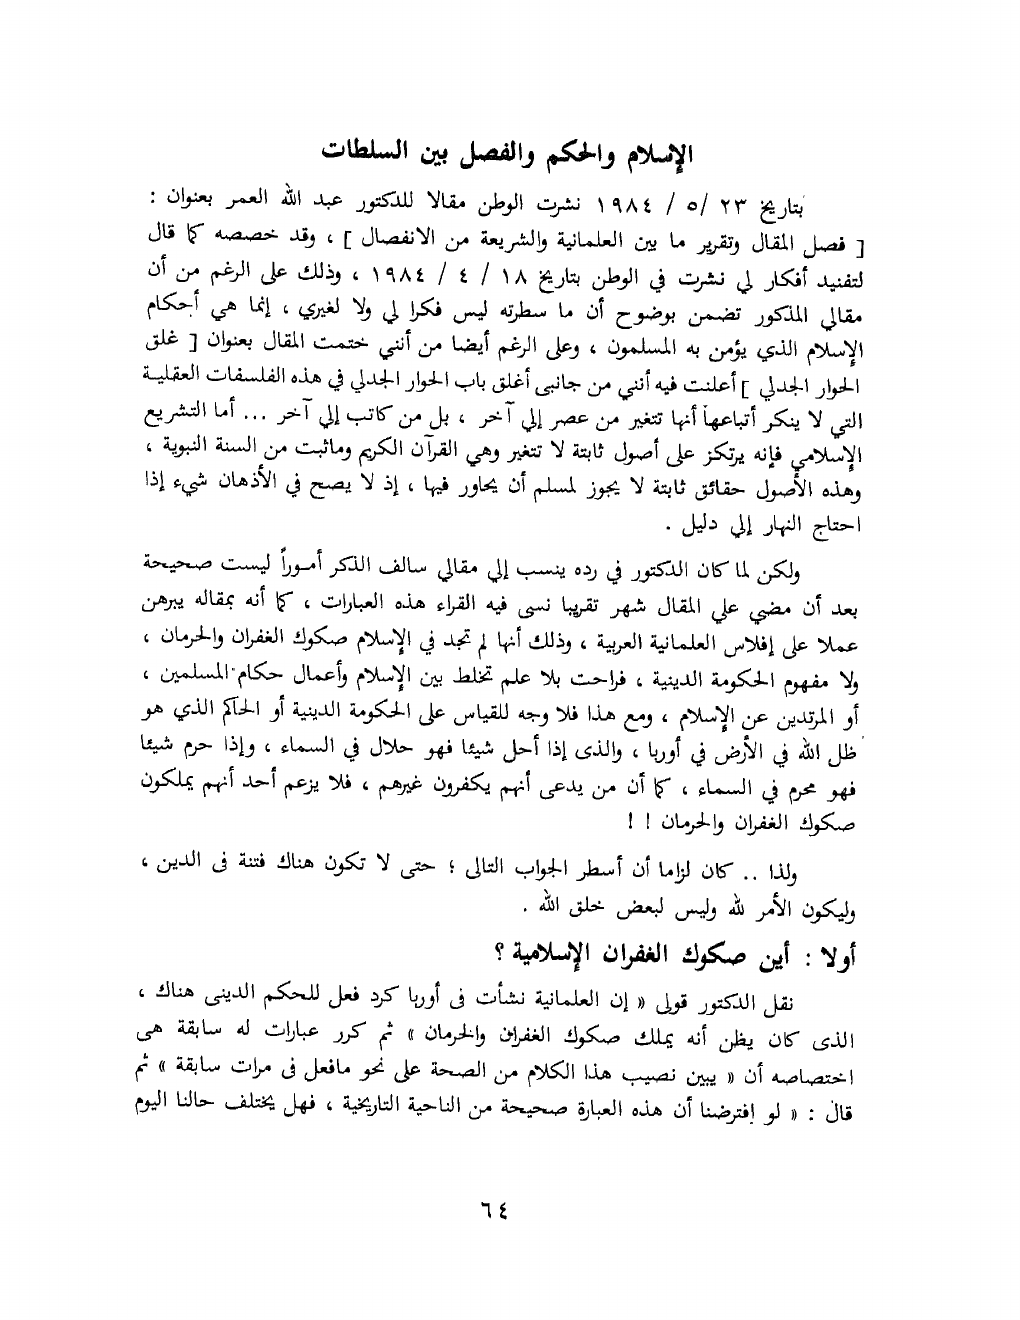 الإسلام والحكم والفصل بين السلطات
بتاريخ ٢٣ /٥ / ١٩٨٤ نشرت الوطن مقالا للدكتور عبد الله العمر بعنوان :
[ فصل المقال وتقرير ما بين العلمانية والشريعة من الانفصال ] ، وقد خصصه كما قال
لتفنيد أفكار لي نشرت في الوطن بتاريخ ١٨ / ٤ / ١٩٨٤ ، وذلك على الرغم من أن
مقالي المذكور تضمن بوضوح أن ما سطرته ليس فكرا لي ولا لغيري ، إنما هي أحكام
الإسلام الذي يؤمن به المسلمون ، وعلى الرغم أيضا من أنني ختمت المقال بعنوان [ غلق
الحوار الجدلي ] أعلنت فيه أنني من جانبى أغلق باب الحوار الجدلي في هذه الفلسفات العقلية
التي لا ينكر أتباعها أنها تتغير من عصر إلي آخر ، بل من كاتب إلي آخر ... أما التشريع
الإسلامي فإنه يرتكز على أصول ثابتة لا تتغير وهي القرآن الكريم وماثبت من السنة النبوية ،
وهذه الأصول حقائق ثابتة لا يجوز لمسلم أن يحاور فيها ، إذ لا يصح في الأذهان شيء إذا
احتاج النهار إلي دليل .
ولكن لما كان الدكتور في رده ينسب إلي مقالي سالف الذكر أموراً ليست صحيحة
بعد أن مضي علي المقال شهر تقريبا نسى فيه القراء هذه العبارات ، كما أنه بمقاله يبرهن
عملا على إفلاس العلمانية العربية ، وذلك أنها لم تجد في الإسلام صكوك الغفران والحرمان ،
ولا مفهوم الحكومة الدينية ، فراحت بلا علم تخلط بين الإسلام وأعمال حكام المسلمين ،
أو المرتدين عن الإسلام ، ومع هذا فلا وجه للقياس على الحكومة الدينية أو الحاكم الذي هو
ظل الله في الأرض في أوربا ، والذى إذا أحل شيئا فهو حلال في السماء ، وإذا حرم شيئا
فهو محرم في السماء ، كما أن من يدعى أنهم يكفرون غيرهم ، فلا يزعم أحد أنهم يملكون
صكوك الغفران والحرمان ! !
ولذا .. كان لزاما أن أسطر الجواب التالى ؛ حتى لا تكون هناك فتنة فى الدين ،
وليكون الأمر لله وليس لبعض خلق الله .
أولا : أين صكوك الغفران الإسلامية ؟
نقل الدكتور قولى « إن العلمانية نشأت فى أوربا كرد فعل للحكم الدينى هناك ،
الذى كان يظن أنه يملك صكوك الغفران والحرمان » ثم كرر عبارات له سابقة هى
اختصاصه أن « يبين نصيب هذا الكلام من الصحة على نحو مافعل فى مرات سابقة » ثم
قال : « لو إفترضنا أن هذه العبارة صحيحة من الناحية التاريخية ، فهل يختلف حالنا اليوم
٦٤